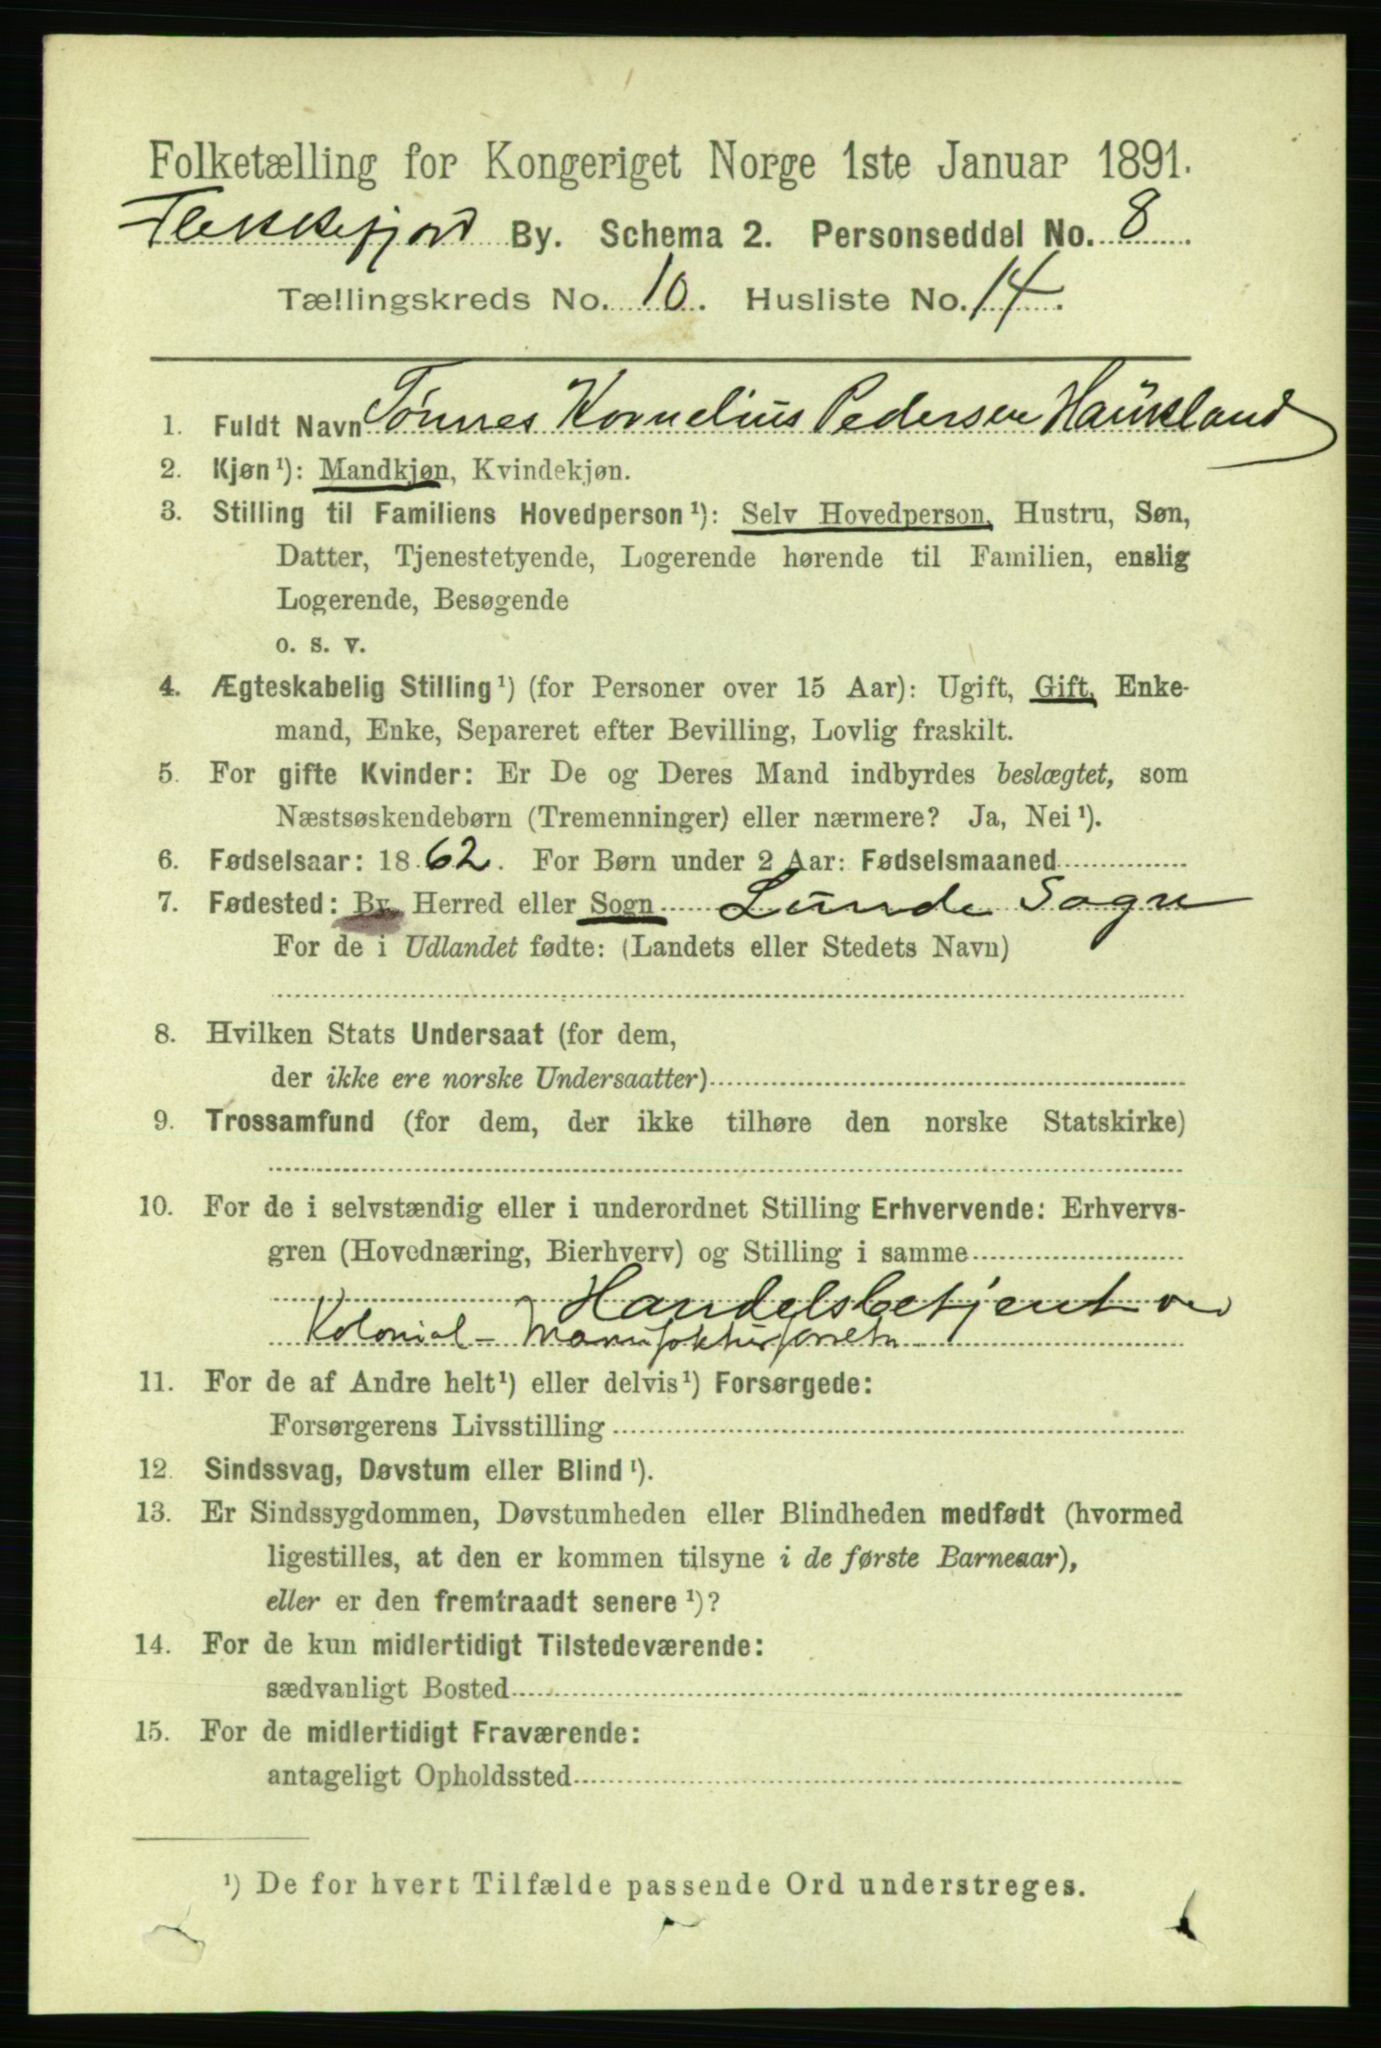 Folketælling for Kongeriget Norge 1ste Januar 1891.
Flekkefjord By. Schema 2. Personseddel No. 8
Tællingskreds No. 10. Husliste No. 14.
1. Fuldt Navn Tønnes Kornelius Pedersen Haŭkland
2. Kjøn¹): Mandkjøn, Kvindekjøn.
3. Stilling til Familiens Hovedperson¹): Selv Hovedperson, Hustru, Søn,
Datter, Tjenestetyende, Logerende hørende til Familien, enslig
Logerende, Besøgende
o. s. v.
4. Ægteskabelig Stilling¹) (for Personer over 15 Aar): Ugift, Gift, Enke-
mand, Enke, Separeret efter Bevilling, Lovlig fraskilt.
5. For gifte Kvinder: Er De og Deres Mand indbyrdes beslægtet, som
Næstsøskendebørn (Tremenninger) eller nærmere? Ja, Nei¹).
6. Fødselsaar: 1862. For Børn under 2 Aar: Fødselsmaaned
7. Fødested: By, Herred eller Sogn Lunde Sogn
For de i Udlandet fødte: (Landets eller Stedets Navn)
8. Hvilken Stats Undersaat (for dem,
der ikke ere norske Undersaatter)
9. Trossamfund (for dem, der ikke tilhøre den norske Statskirke)
10. For de i selvstændig eller i underordnet Stilling Erhvervende: Erhvervs-
gren (Hovednæring, Bierhverv) og Stilling i samme
Handelsbetjent ved
Kolonial- Manufakturforretn
11. For de af Andre helt¹) eller delvis¹) Forsørgede:
Forsørgerens Livsstilling
12. Sindssvag, Døvstum eller Blind¹).
13. Er Sindssygdommen, Døvstumheden eller Blindheden medfødt (hvormed
ligestilles, at den er kommen tilsyne i de første Barneaar),
eller er den fremtraadt senere¹)?
14. For de kun midlertidigt Tilstedeværende:
sædvanligt Bosted
15. For de midlertidigt Fraværende:
antageligt Opholdssted
¹) De for hvert Tilfælde passende Ord understreges.